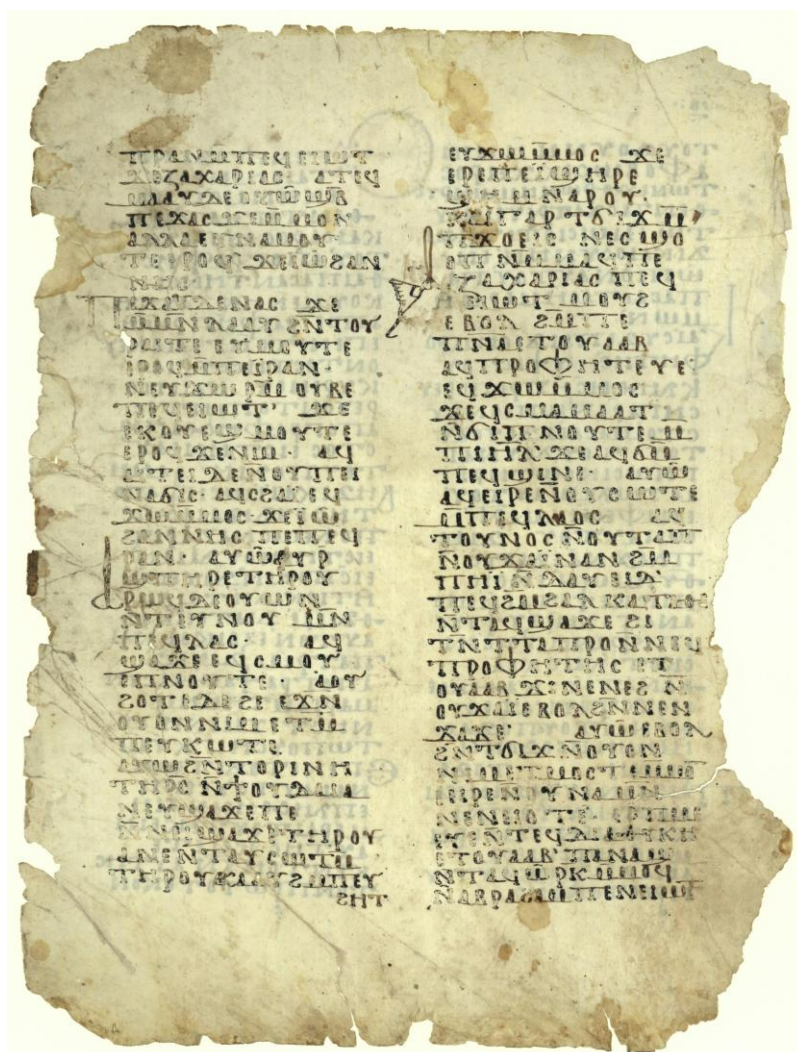 ⲡⲣⲁⲛⲙⲡⲉϥⲉⲓⲱⲧ
ϫⲉⲍⲁⲭⲁⲣⲓⲁⲥ· ⲁⲧⲉϥ
ⲙⲁⲁⲩⲇⲉⲟⲩⲱϣⲃ
ⲡⲉϫⲁⲥϫⲉⲙⲙⲟⲛ
ⲁⲗⲗⲁⲉⲩⲛⲁⲙⲟⲩ
ⲧⲉⲉⲣⲟϥϫⲉⲓⲱϩⲁⲛ
ⲛⲏⲥ
ⲡⲉϫⲁⲩⲇⲉⲛⲁⲥ ϫⲉ
ⲙⲙⲛⲗⲁⲁⲩϩⲛⲧⲟⲩ
ⲣⲁⲓⲧⲉ ⲉⲩⲙⲟⲩⲧⲉ
ⲉⲣⲟϥⲙⲡⲉⲓⲣⲁⲛ·
ⲛⲉⲩϫⲱⲣⲙ̅ ⲟⲩⲃⲉ
ⲡⲉϥⲉⲓⲱⲧ ϫⲉ
ⲉⲕⲟⲩⲉϣⲙⲟⲩⲧⲉ
ⲉⲣⲟϥϫⲉⲛⲓⲙ· ⲁϥ
ⲁⲓⲧⲉⲓⲇⲉⲛⲟⲩⲡⲓ
ⲛⲁϭⲓⲥ· ⲁϥⲥϩⲁⲓⲉϥ
ϫⲱⲙⲙⲟⲥ·ϫⲉⲓⲱ
ϩⲁⲛⲛⲏⲥ ⲡⲉⲡⲉϥ
ⲣⲁⲛ· ⲁⲩⲱⲁⲩⲣ
ϣⲡⲏⲣⲉⲧⲏⲣⲟⲩ
ⲣⲱϥⲇⲉⲟⲩⲱⲛ
ⲛⲧⲉⲩⲛⲟⲩ ⲙⲛ
ⲡⲉϥⲗⲁⲥ· ⲁϥ
ϣⲁϫⲉⲉϥⲥⲙⲟⲩ
ⲉⲡⲛⲟⲩⲧⲉ· ⲁⲩ
ϩⲟⲧⲉⲇⲉϩⲉ ⲉϫⲛ
ⲟⲩⲟⲛⲛⲓⲙⲉⲧⲙ
ⲡⲉⲩⲕⲱⲧⲉ
ⲁⲩⲱϩⲛⲧⲟⲣⲓⲛⲏ
ⲧⲏⲣⲥ ⲛϯⲟⲩⲇⲁⲓⲁ
ⲛⲉⲩϣⲁϫⲉⲡⲉ
ⲛⲛⲉⲓϣⲁϫⲉⲧⲏⲣⲟⲩ
ⲁⲛⲉⲛⲧⲁⲩⲥⲱⲧⲙ
ⲧⲏⲣⲟⲩⲕⲁⲁⲩϩⲙⲡⲉⲩ
ϩⲏⲧ
ⲉⲩϫⲱⲙⲙⲟⲥ ϫⲉ
ⲉⲣⲉⲡⲉⲓϣⲏⲣⲉ
ϣⲏⲙⲛⲁⲣⲟⲩ·
ⲕⲁⲓⲅⲁⲣ ⲧϭⲓϫ ⲙ
ⲡϫⲟⲉⲓⲥ ⲛⲉⲥϣⲟ
ⲟⲡ ⲛⲙⲙⲁϥⲡⲉ
ⲍⲁⲭⲁⲣⲓⲁⲥ ⲡⲉϥ
ⲉⲓⲱⲧ ⲙⲟⲩϩ
ⲉⲃⲟⲗ ϩⲙⲡⲉ
ⲡⲛⲁⲉⲧⲟⲩⲁⲁⲃ
ⲁϥⲡⲣⲟⲫⲏⲧⲉⲩⲉ
ⲉϥϫⲱⲙⲙⲟⲥ
ϫⲉϥⲥⲙⲁⲙⲁⲁⲧ
ⲛϭⲓⲡⲛⲟⲩⲧⲉ ⲙ
ⲡⲓⲏⲗ ϫⲉⲁϥϭⲙ
ⲡⲉϥϣⲓⲛⲉ· ⲁⲩⲱ
ⲁϥⲉⲓⲣⲉⲛⲟⲩⲥⲱⲧⲉ
ⲙⲡⲉϥⲗⲁⲟⲥ ⲁϥ
ⲧⲟⲩⲛⲟⲥⲛⲟⲩⲧⲁⲡ
ⲛⲟⲩϫⲁⲓⲛⲁⲛ ϩⲙ
ⲡⲏⲓⲛⲇⲁⲩⲉⲓⲇ
ⲡⲉϥϩⲙϩⲁⲗ ⲕⲁⲧⲁⲑⲉ
ⲛⲧⲁϥϣⲁϫⲉ ϩⲓ
ⲧⲛⲧⲧⲁⲡⲣⲟⲛⲛⲉϥ
ⲡⲣⲟⲫⲏⲧⲏⲥ ⲉⲧ
ⲟⲩⲁⲁⲃ ϫⲓⲛⲉⲛⲉϩ ⲛ
ⲟⲩϫⲁⲓⲉⲃⲟⲗϩⲛⲛⲉⲛ
ϫⲁϫⲉ ⲁⲩⲱⲉⲃⲟⲗ
ϩⲛⲧϭⲓϫ ⲛⲟⲩⲟⲛ
ⲛⲓⲙⲉⲧⲙⲟⲥⲧⲉⲙⲙⲟ
ⲉⲓⲣⲉⲛⲟⲩⲛⲁⲙⲛ
ⲛⲉⲛⲉⲓⲟⲧⲉ· ⲉⲣⲡⲙⲉ
ⲉⲩⲉⲛⲧⲉϥⲇⲓⲁⲑⲏⲕⲏ
ⲉⲧⲟⲩⲁⲁⲃ ⲡⲁⲛⲁϣ
ⲛⲧⲁϥⲱⲣⲕⲙⲙⲟϥ
ⲛⲁⲃⲣⲁϩⲁⲙⲡⲉⲛⲉⲓⲱⲧ